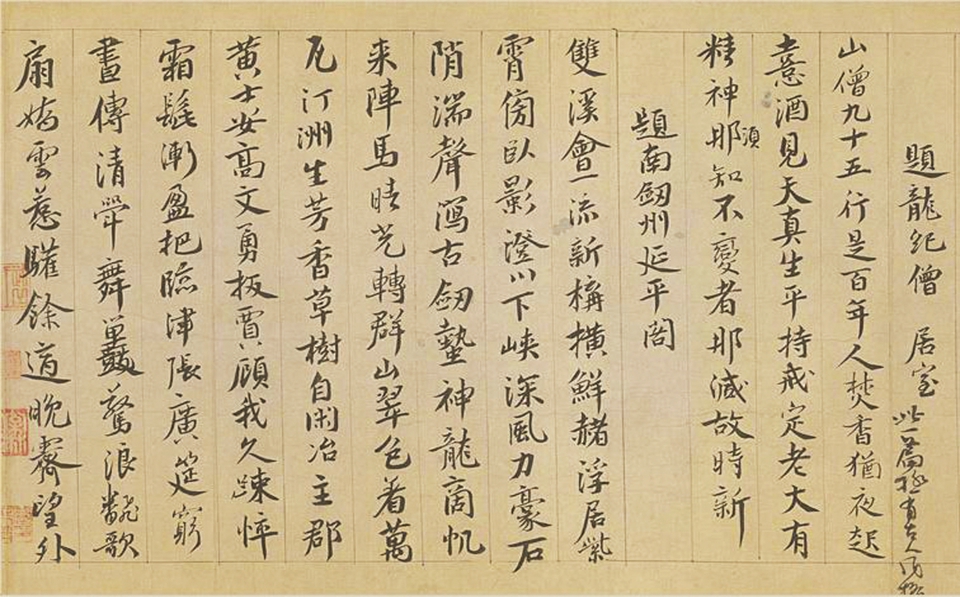 題龍紀僧居室 此一篇極有古人風格
山僧九十五行是百年人焚香猶夜起
憙酒見天真生平持戒定老大有
精神那須知不變者那減故時新
題南劔州延平閣
雙溪會一流新構橫鮮赭浮居紫
霄傍臥影澄川下峽深風力豪石
陗湍聲瀉古劔蟄神龍商帆
来陣馬晴光轉群山翠色着萬
瓦汀洲生芳香草樹自閑冶主郡
黃士安高文勇扳賈顧我久踈悴
霜髭漸盈把臨津張廣筵窮
晝傳清斝舞鼉驚浪翻歌
扇嬌雲惹驩餘適晚霽望外